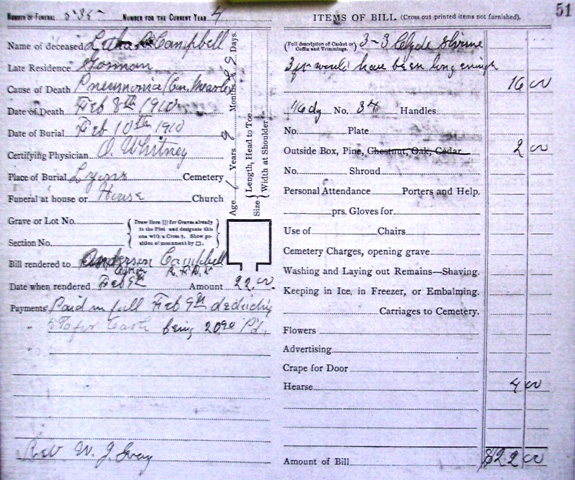 51
NUMBER OF FUNERAL 535 NUMBER FOR THE CURRENT YEAR 4
Name of deceased Campbell
Late Residence Gorman
Cause of Death Pneumonia
Date of Death Feb 8th 1910
Date of Burial Feb 10th 1910
Certifying Physician O. Whitney
Place of Burial Lyons Cemetery
Funeral at house or House Church
Grave or Lot No.
Section No.
Draw lines for Graves already in the Plot and designate this one with a Cross †. Show position of monument by □.
Age Years 9 Months 9 Days
Size { Length, Head to Toe
Width at Shoulder
Bill rendered to Anderson Campbell
Date when rendered Feb 9th Amount 22.00
Payments Paid in full Feb 9th deducting
being 20.90 P'd.
Rev W. J. Gray
ITEMS OF BILL. (Cross out printed items not furnished).
(Full description of Casket or Coffin and Trimmings. 3-3 Clyde Shrine
would have been long enough
16 00
No. Handles
No. Plate
Outside Box, Pine, Chestnut, Oak, Cedar 2 00
No. Shroud
Personal Attendance Porters and Help.
prs. Gloves for
Use of Chairs
Cemetery Charges, opening grave
Washing and Laying out Remains—Shaving.
Keeping in Ice, in Freezer, or Embalming.
Carriages to Cemetery.
Flowers
Advertising
Crape for Door
Hearse 4 00
Amount of Bill $22 00